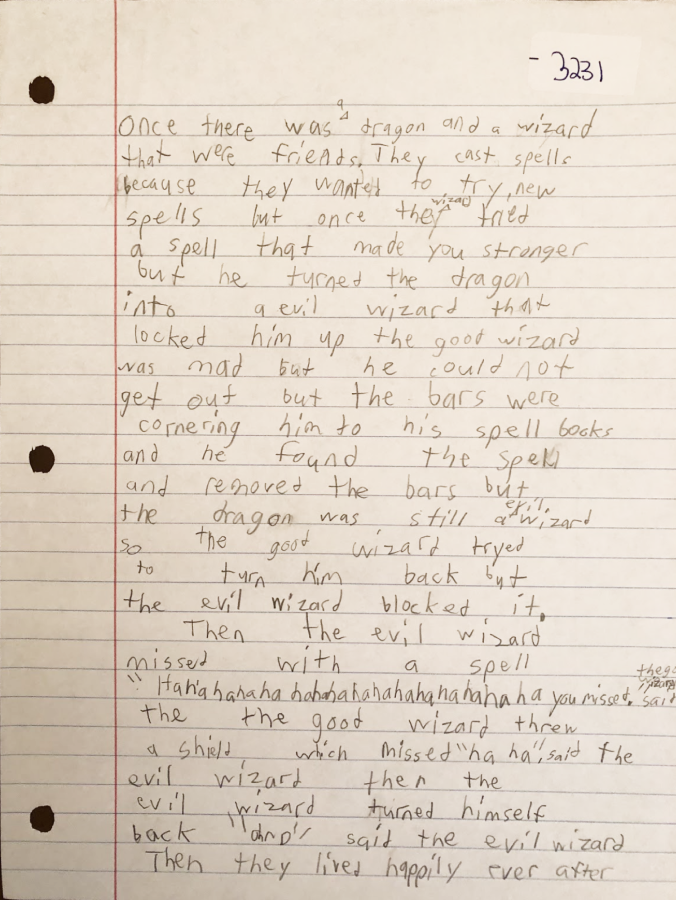 - 3231
Once there was a dragon and a wizard
that were friends. They cast spells
because they wanted to try new
spells but once the wizard tried
a spell that made you stronger
but he turned the dragon
into a evil wizard that
locked him up the good wizard
was mad but he could not
get out but the bars were
cornering him to his spell books
and he found the spell
and removed the bars but
the dragon was still a evil wizard
so the good wizard tryed
to turn him back but
the evil wizard blocked it.
Then the evil wizard
missed with a spell
"Hahahahaha hahahahahahahahahahahaha you missed. said the good wizard
the the good wizard threw
a shield which missed "ha ha", said the
evil wizard then the
evil wizard turned himself
back said the evil wizard
Then they lived happily ever after